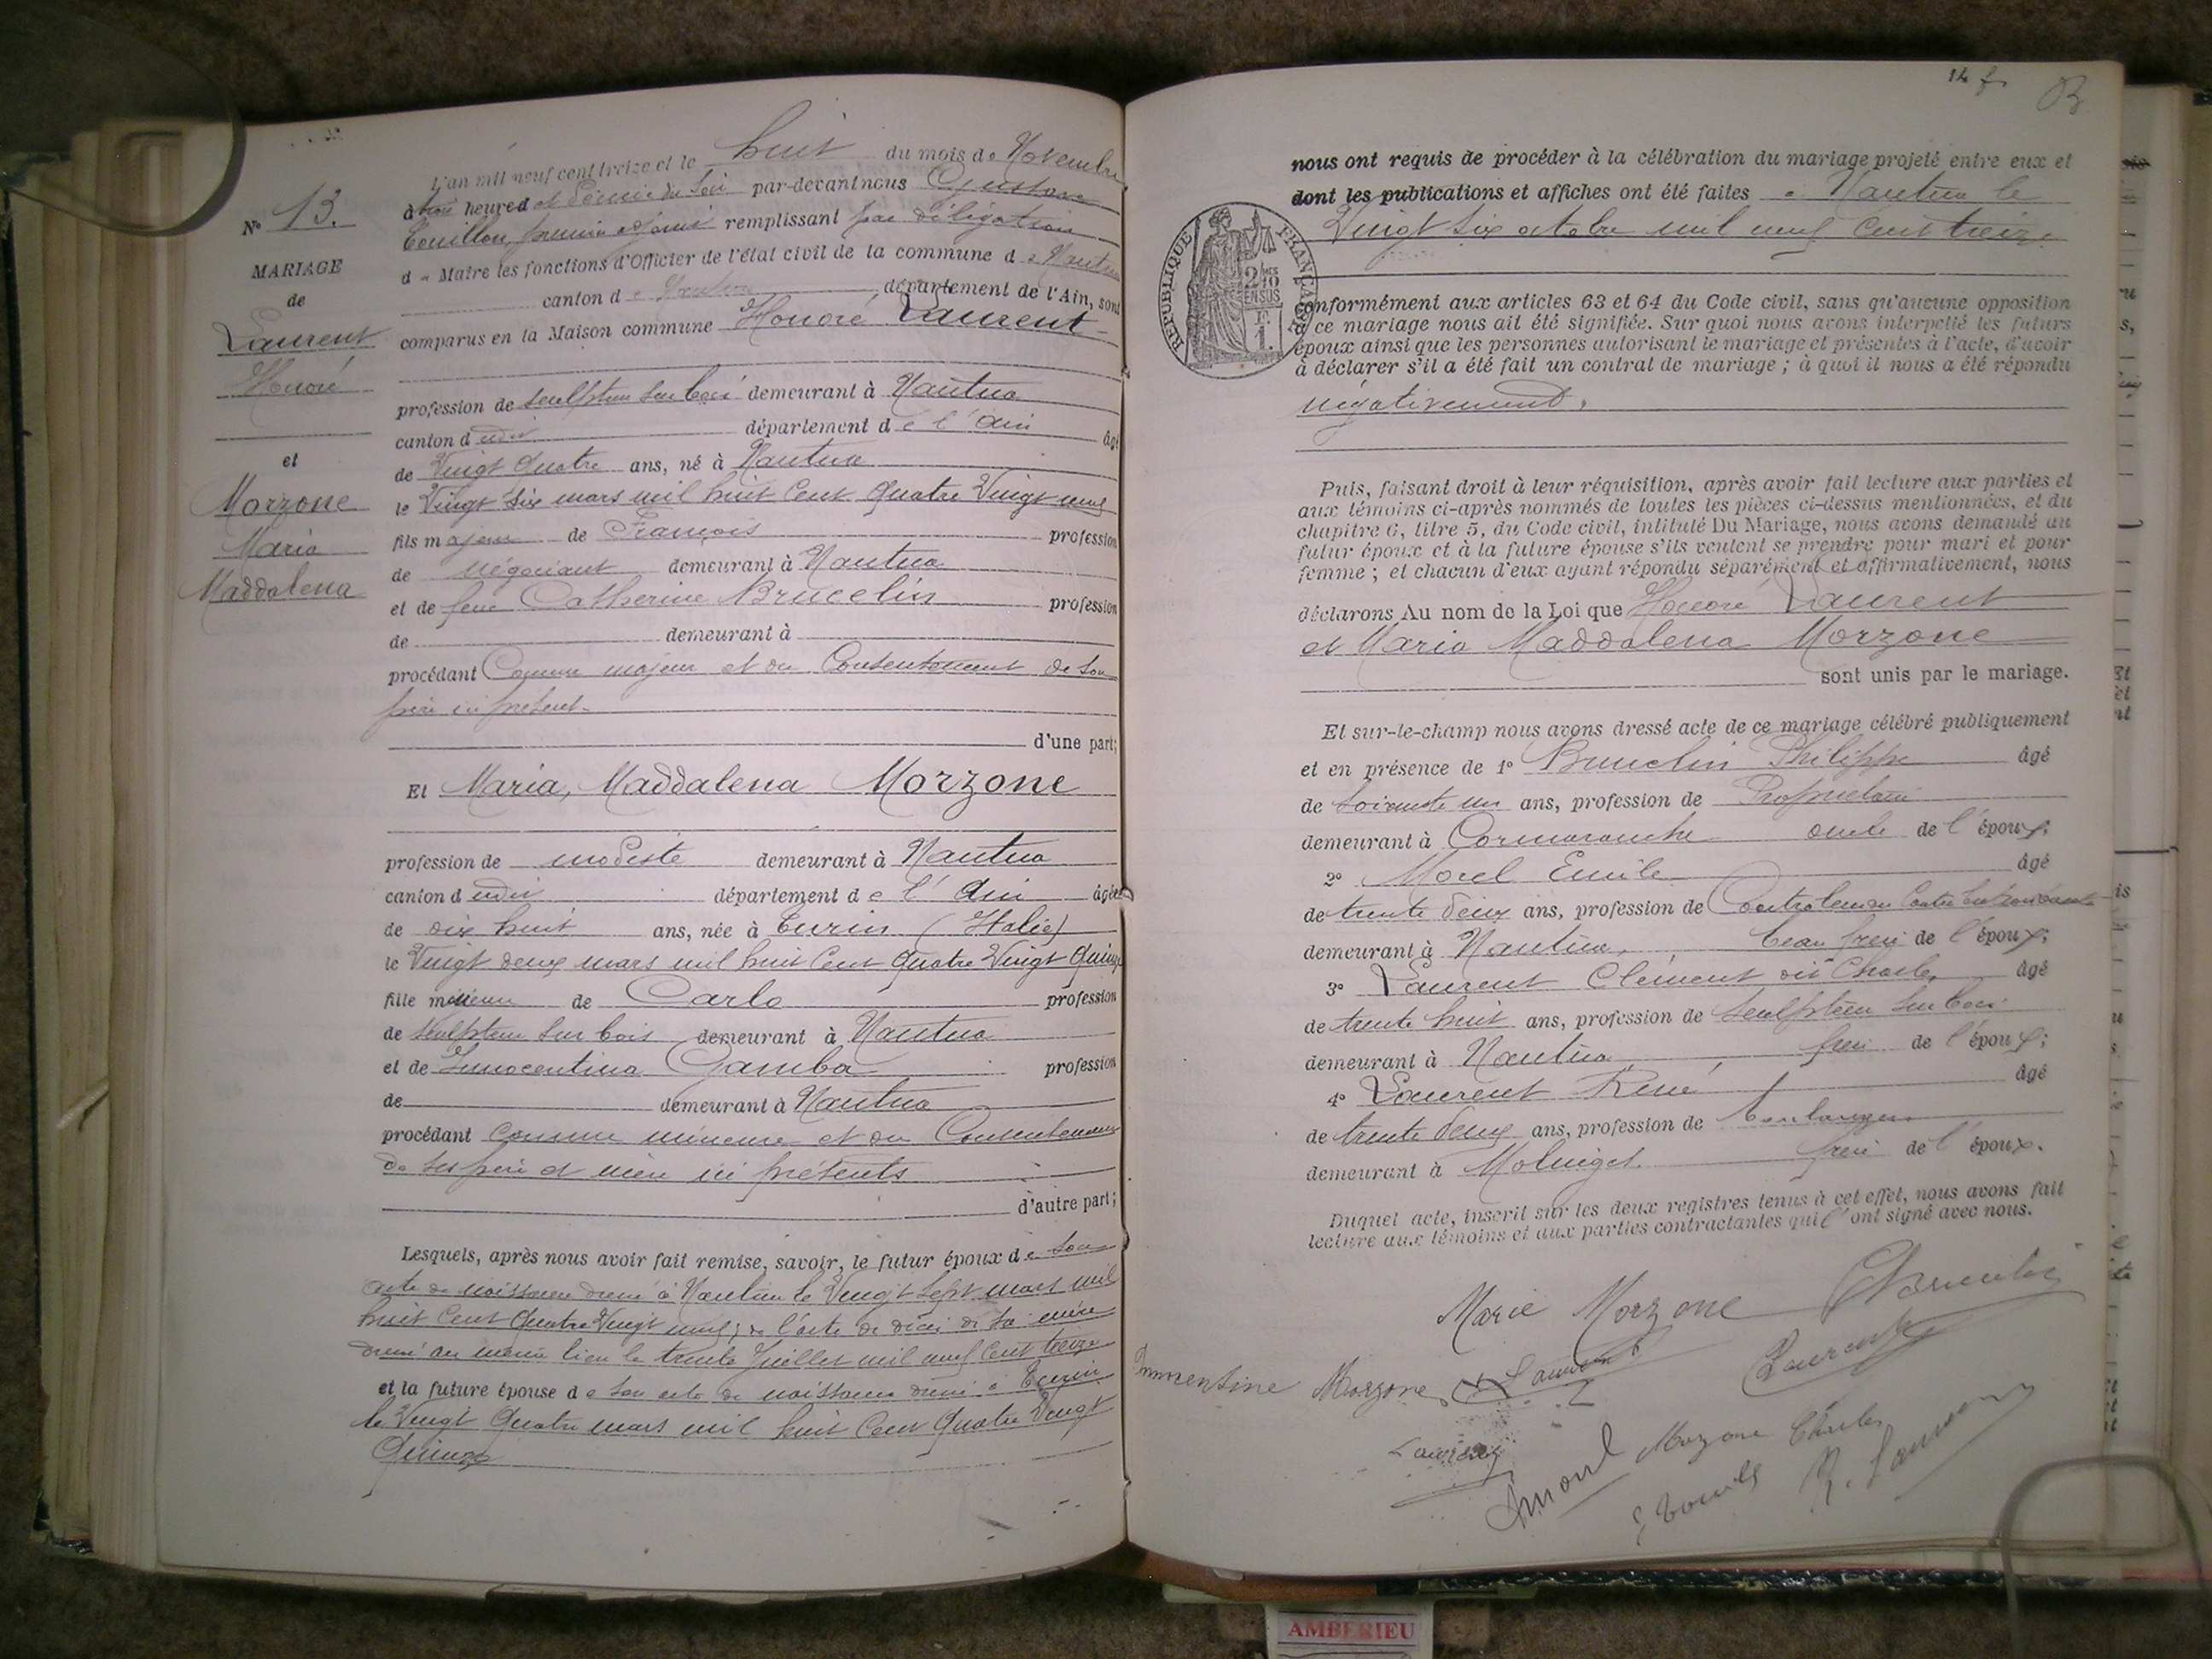 N° 13.
MARIAGE
de
Laurent
Honoré
et
Morzone
Maria
Maddalena
L'an mil neuf cent treize et le huit du mois de Novembre
à trois heures et demie du soir par-devant nous Gustave
premier adjoint remplissant par délégation
du Maire les fonctions d'Officier de l'état civil de la commune de Nantua
canton de Nantua département de l'Ain, sont
comparus en la Maison commune Honoré Laurent
profession de sculpteur sur bois demeurant à Nantua
canton dudit département de l'Ain âgé
de Vingt quatre ans, né à Nantua
le Vingt six mars mil huit cent quatre Vingt neuf
fils majeur de François profession
de négociant demeurant à Nantua
et de feue Catherine Brucelin profession
de demeurant à
procédant Comme majeur et du Consentement de son
père ici présent.
d'une part;
Et Maria, Maddalena Morzone
profession de modiste demeurant à Nantua
canton dudit département de l'Ain âgée
de dix huit ans, née à Turin (Italie)
le Vingt deux mars mil huit cent quatre Vingt quinze
fille mineure de Carlo profession
de sculpteur sur bois demeurant à Nantua
et de Innocentina Gamba profession
de demeurant à Nantua
procédant comme mineure et du Consentement
de ses père et mère ici présents
d'autre part;
Lesquels, après nous avoir fait remise, savoir, le futur époux de son
acte de naissance dressé à Nantua le Vingt sept mars mil
huit cent quatre Vingt neuf; de l'acte de décès de sa mère
dressé au même lieu le trente Juillet mil neuf cent treize
et la future épouse de son acte de naissance dressé à Turin
le Vingt quatre mars mil huit cent quatre Vingt
Quinze
nous ont requis de procéder à la célébration du mariage projeté entre eux et
dont les publications et affiches ont été faites à Nantua le
Vingt six octobre mil neuf cent treize
RÉPUBLIQUE FRANÇAISE
conformément aux articles 63 et 64 du Code civil, sans qu'aucune opposition
à ce mariage nous ait été signifiée. Sur quoi nous avons interpellé les futurs
époux ainsi que les personnes autorisant le mariage et présentes à l'acte, d'avoir
à déclarer s'il a été fait un contrat de mariage ; à quoi il nous a été répondu
négativement.
Puis, faisant droit à leur réquisition, après avoir fait lecture aux parties et
aux témoins ci-après nommés de toutes les pièces ci-dessus mentionnées, et du
chapitre 6, titre 5, du Code civil, intitulé Du Mariage, nous avons demandé au
futur époux et à la future épouse s'ils veulent se prendre pour mari et pour
femme ; et chacun d'eux ayant répondu séparément et affirmativement, nous
déclarons Au nom de la Loi que Honoré Laurent
et Maria Maddalena Morzone
sont unis par le mariage.
Et sur-le-champ nous avons dressé acte de ce mariage célébré publiquement
et en présence de 1° Brucelin Philippe âgé
de soixante un ans, profession de Propriétaire
demeurant à Cormaranche oncle de l'époux;
2° Morel Emile âgé
de trente deux ans, profession de
demeurant à Nantua, beau frère de l'époux;
3° Laurent Clément dit Charles âgé
de trente huit ans, profession de sculpteur sur bois
demeurant à Nantua frère de l'époux;
4° Laurent René âgé
de trente deux ans, profession de boulanger
demeurant à frère de l'époux.
Duquel acte, inscrit sur les deux registres tenus à cet effet, nous avons fait
lecture aux témoins et aux parties contractantes qui l'ont signé avec nous.
Marie Morzone
Morzone Laurent Laurent
Laurent
Morzone Charles
R. Laurent
AMBERIEU